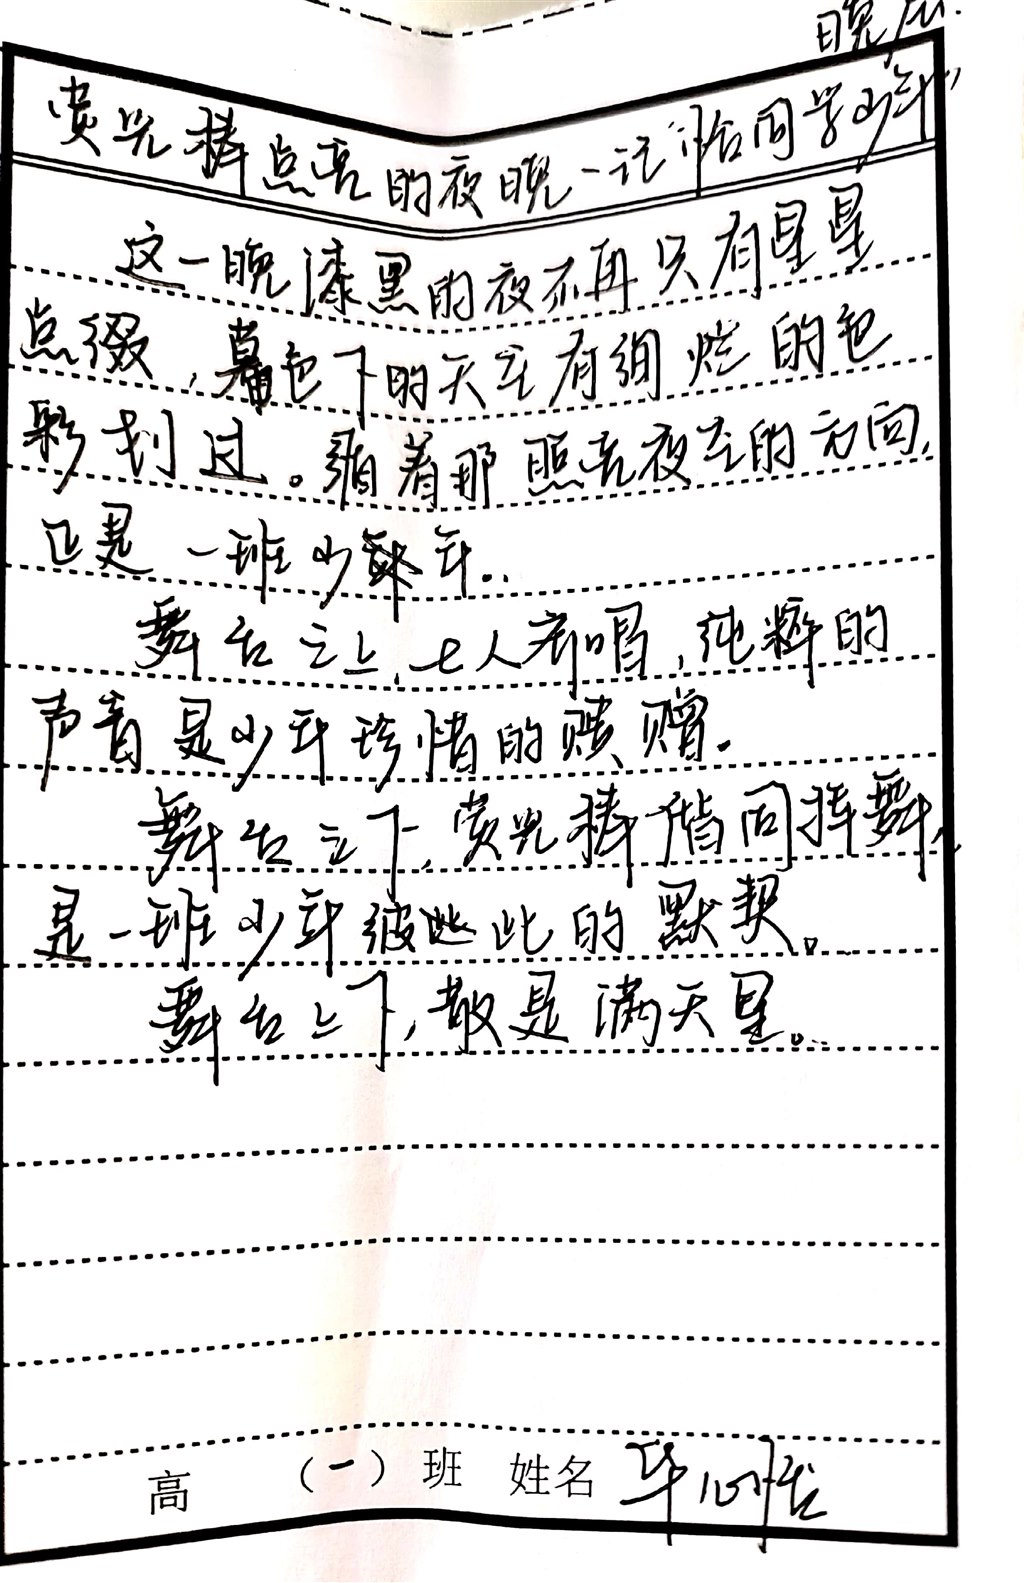 晚会.
荧光棒点亮的夜晚一记"恰同学少年"
这一晚漆黑的夜不再只有星星
点缀,暮色下的天空有绚烂的色
彩划过。循着那照亮夜空的方向,
正是一班少年..
舞台之上,七人齐唱,纯粹的
声音是少年珍惜的馈赠.
舞台之下,荧光棒偕同挥舞,
是一班少年彼此的默契。..
舞台上下,散是满天星。..
高 (一)班 姓名 毕心恬